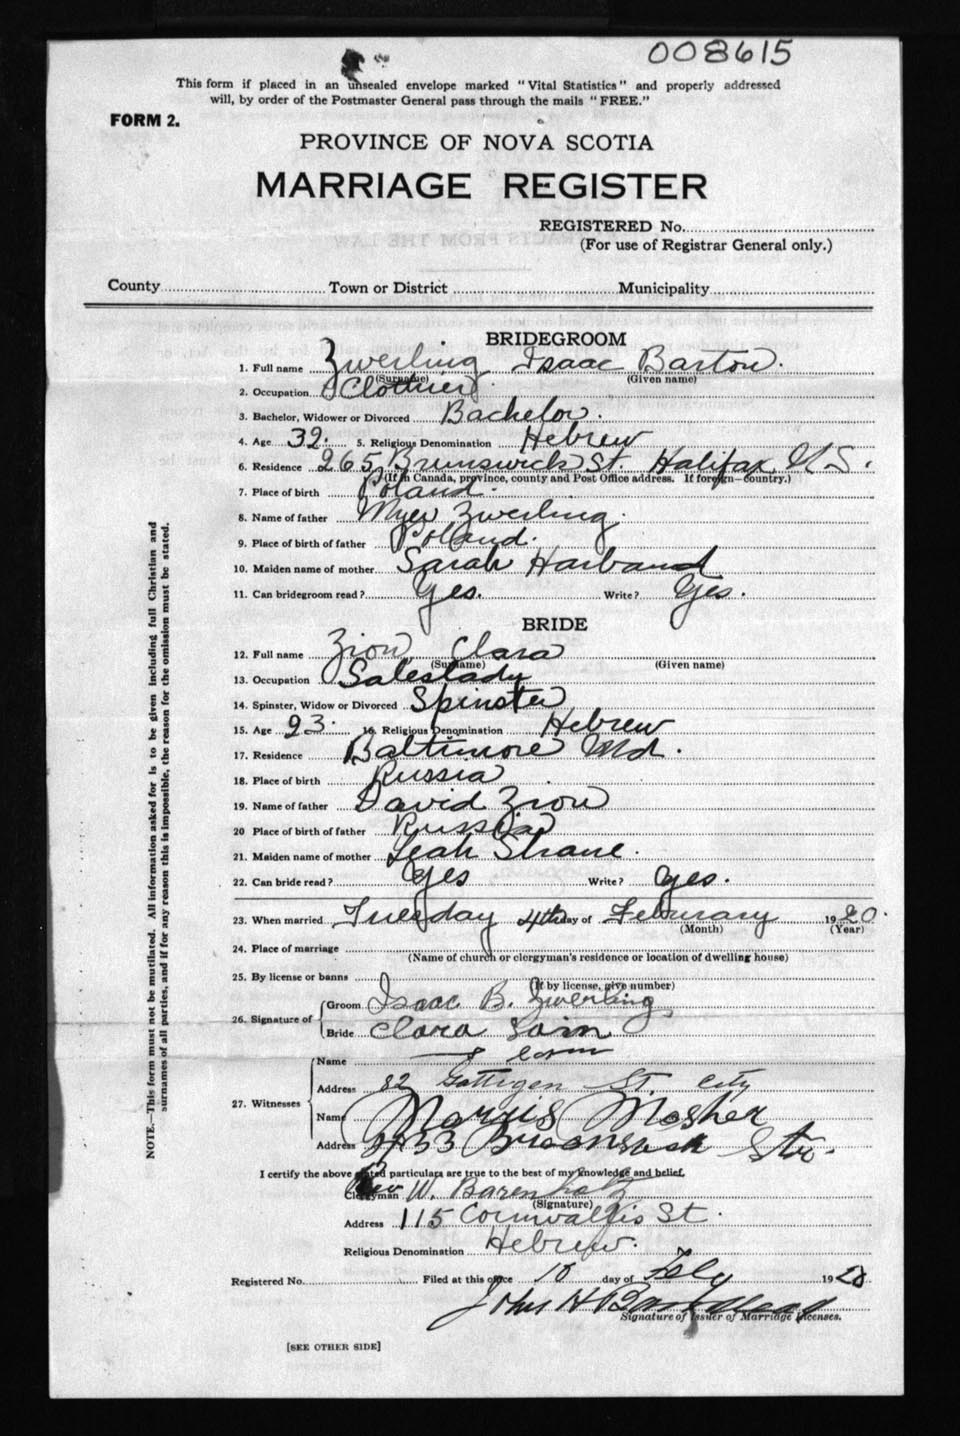 008615
This form if placed in an unsealed envelope marked "Vital Statistics" and properly addressed
will, by order of the Postmaster General pass through the mails "FREE."
FORM 2.
PROVINCE OF NOVA SCOTIA
MARRIAGE REGISTER
REGISTERED No.
(For use of Registrar General only.)
County Town or District Municipality
BRIDEGROOM
1. Full name Zwerling Isaac Barton.
(Surname) (Given name)
2. Occupation Clothier
3. Bachelor, Widower or Divorced Bachelor.
4. Age 32. 5. Religious Denomination Hebrew
6. Residence 265 Brunswick St. Halifax, N.S.
(If in Canada, province, county and Post Office address. If foreign—country.)
7. Place of birth Poland.
8. Name of father Myer Zwerling.
9. Place of birth of father Poland.
10. Maiden name of mother Sarah Harband
11. Can bridegroom read? Yes. Write? Yes.
BRIDE
12. Full name Zion Clara
(Surname) (Given name)
13. Occupation Saleslady
14. Spinster, Widow or Divorced Spinster
15. Age 23. 16. Religious Denomination Hebrew
17. Residence Baltimore Md.
18. Place of birth Russia
19. Name of father David Zion
20 Place of birth of father Russia
21. Maiden name of mother Leah
22. Can bride read? Yes Write? Yes.
23. When married Tuesday 4th day of February 1920.
(Month) (Year)
24. Place of marriage
(Name of church or clergyman's residence or location of dwelling house)
25. By license or banns
(If by license, give number)
26. Signature of Groom Isaac B. Zwerling.
Bride Clara
27. Witnesses Name
Address 82 Gottigen St. City
Name Morris Mosher
Address St.
I certify the above stated particulars are true to the best of my knowledge and belief.
Clergyman Rev W. Barenholtz
(Signature)
Address 115 Cornwallis St.
Religious Denomination Hebrew.
Registered No. Filed at this office 10 day of Feby 1920
John H
Signature of Issuer of Marriage Licenses.
[SEE OTHER SIDE]
NOTE.—This form must not be mutilated. All information asked for is to be given including full Christian and
surnames of all parties, and if for any reason this is impossible, the reason for the omission must be stated.